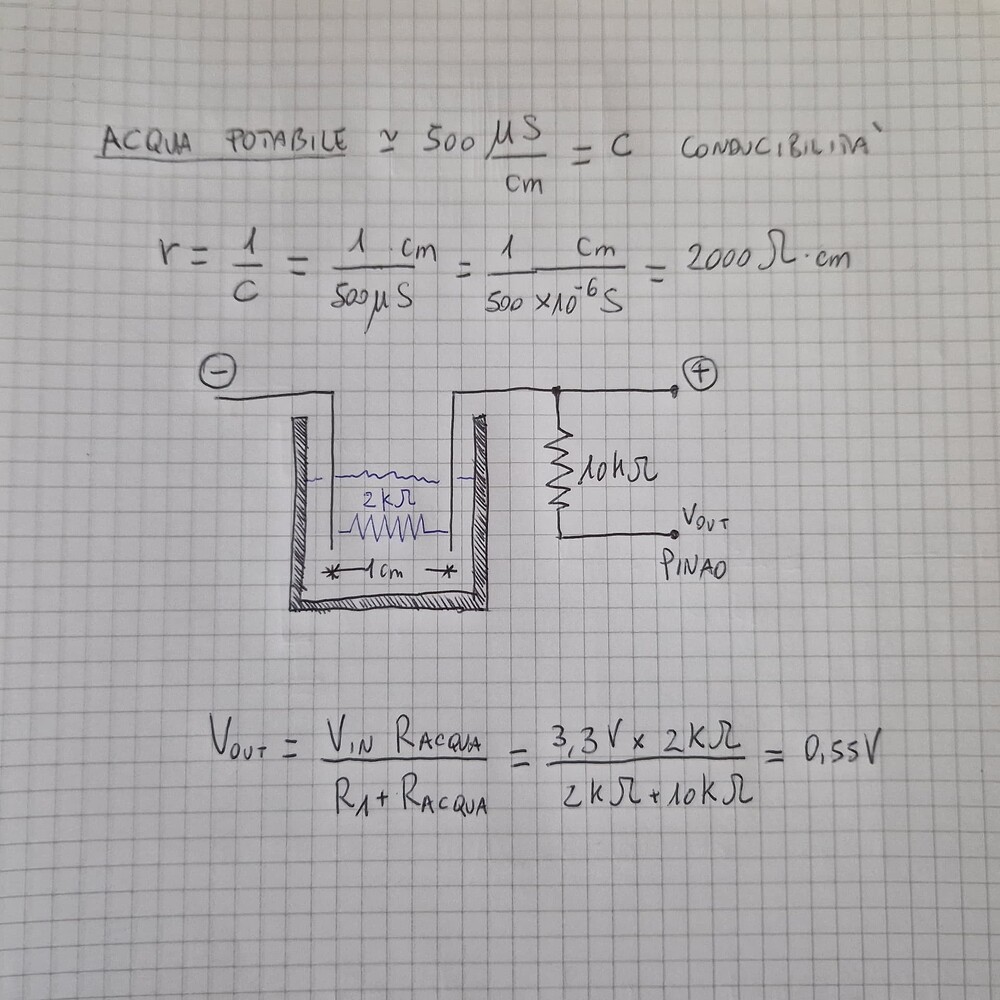 ACQUA POTABILE ≃ 500 μS/cm = C CONDUCIBILITÀ
r = 1/C = 1 · cm/500μS = 1 cm/500 × 10⁻⁶ S = 2000 Ω · cm
− +
10kΩ
2kΩ
VOUT
1cm
PINA0
VOUT = VIN RACQUA/R1 + RACQUA = 3,3V × 2kΩ/2kΩ + 10kΩ = 0,55V